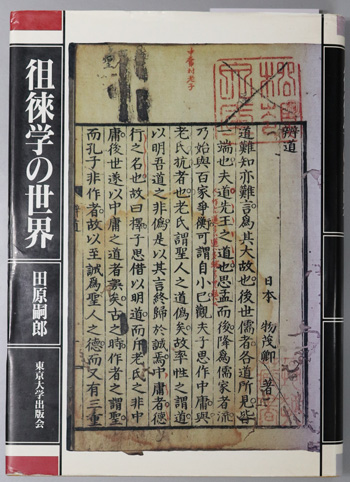 徂徠学の世界
田原嗣郎
東京大学出版会
辨道
日本 物茂卿 著
道難知亦難言為其大故也後世儒者各道所見皆
一端也夫道先王之道也思孟而後降為儒家者流
乃始與百家爭衡可謂自小已觀夫子思作中庸與
老氏抗者也老氏謂聖人之道偽矣故率性之謂道
以明吾道之非偽是以其言終歸於誠焉中庸者德
行之名也故曰擇子思借以明道而斥老氏之非中
庸後世遂以中庸之道者誤矣古之時作者之謂聖
而孔子非作者故以至誠為聖人之德而又有三重